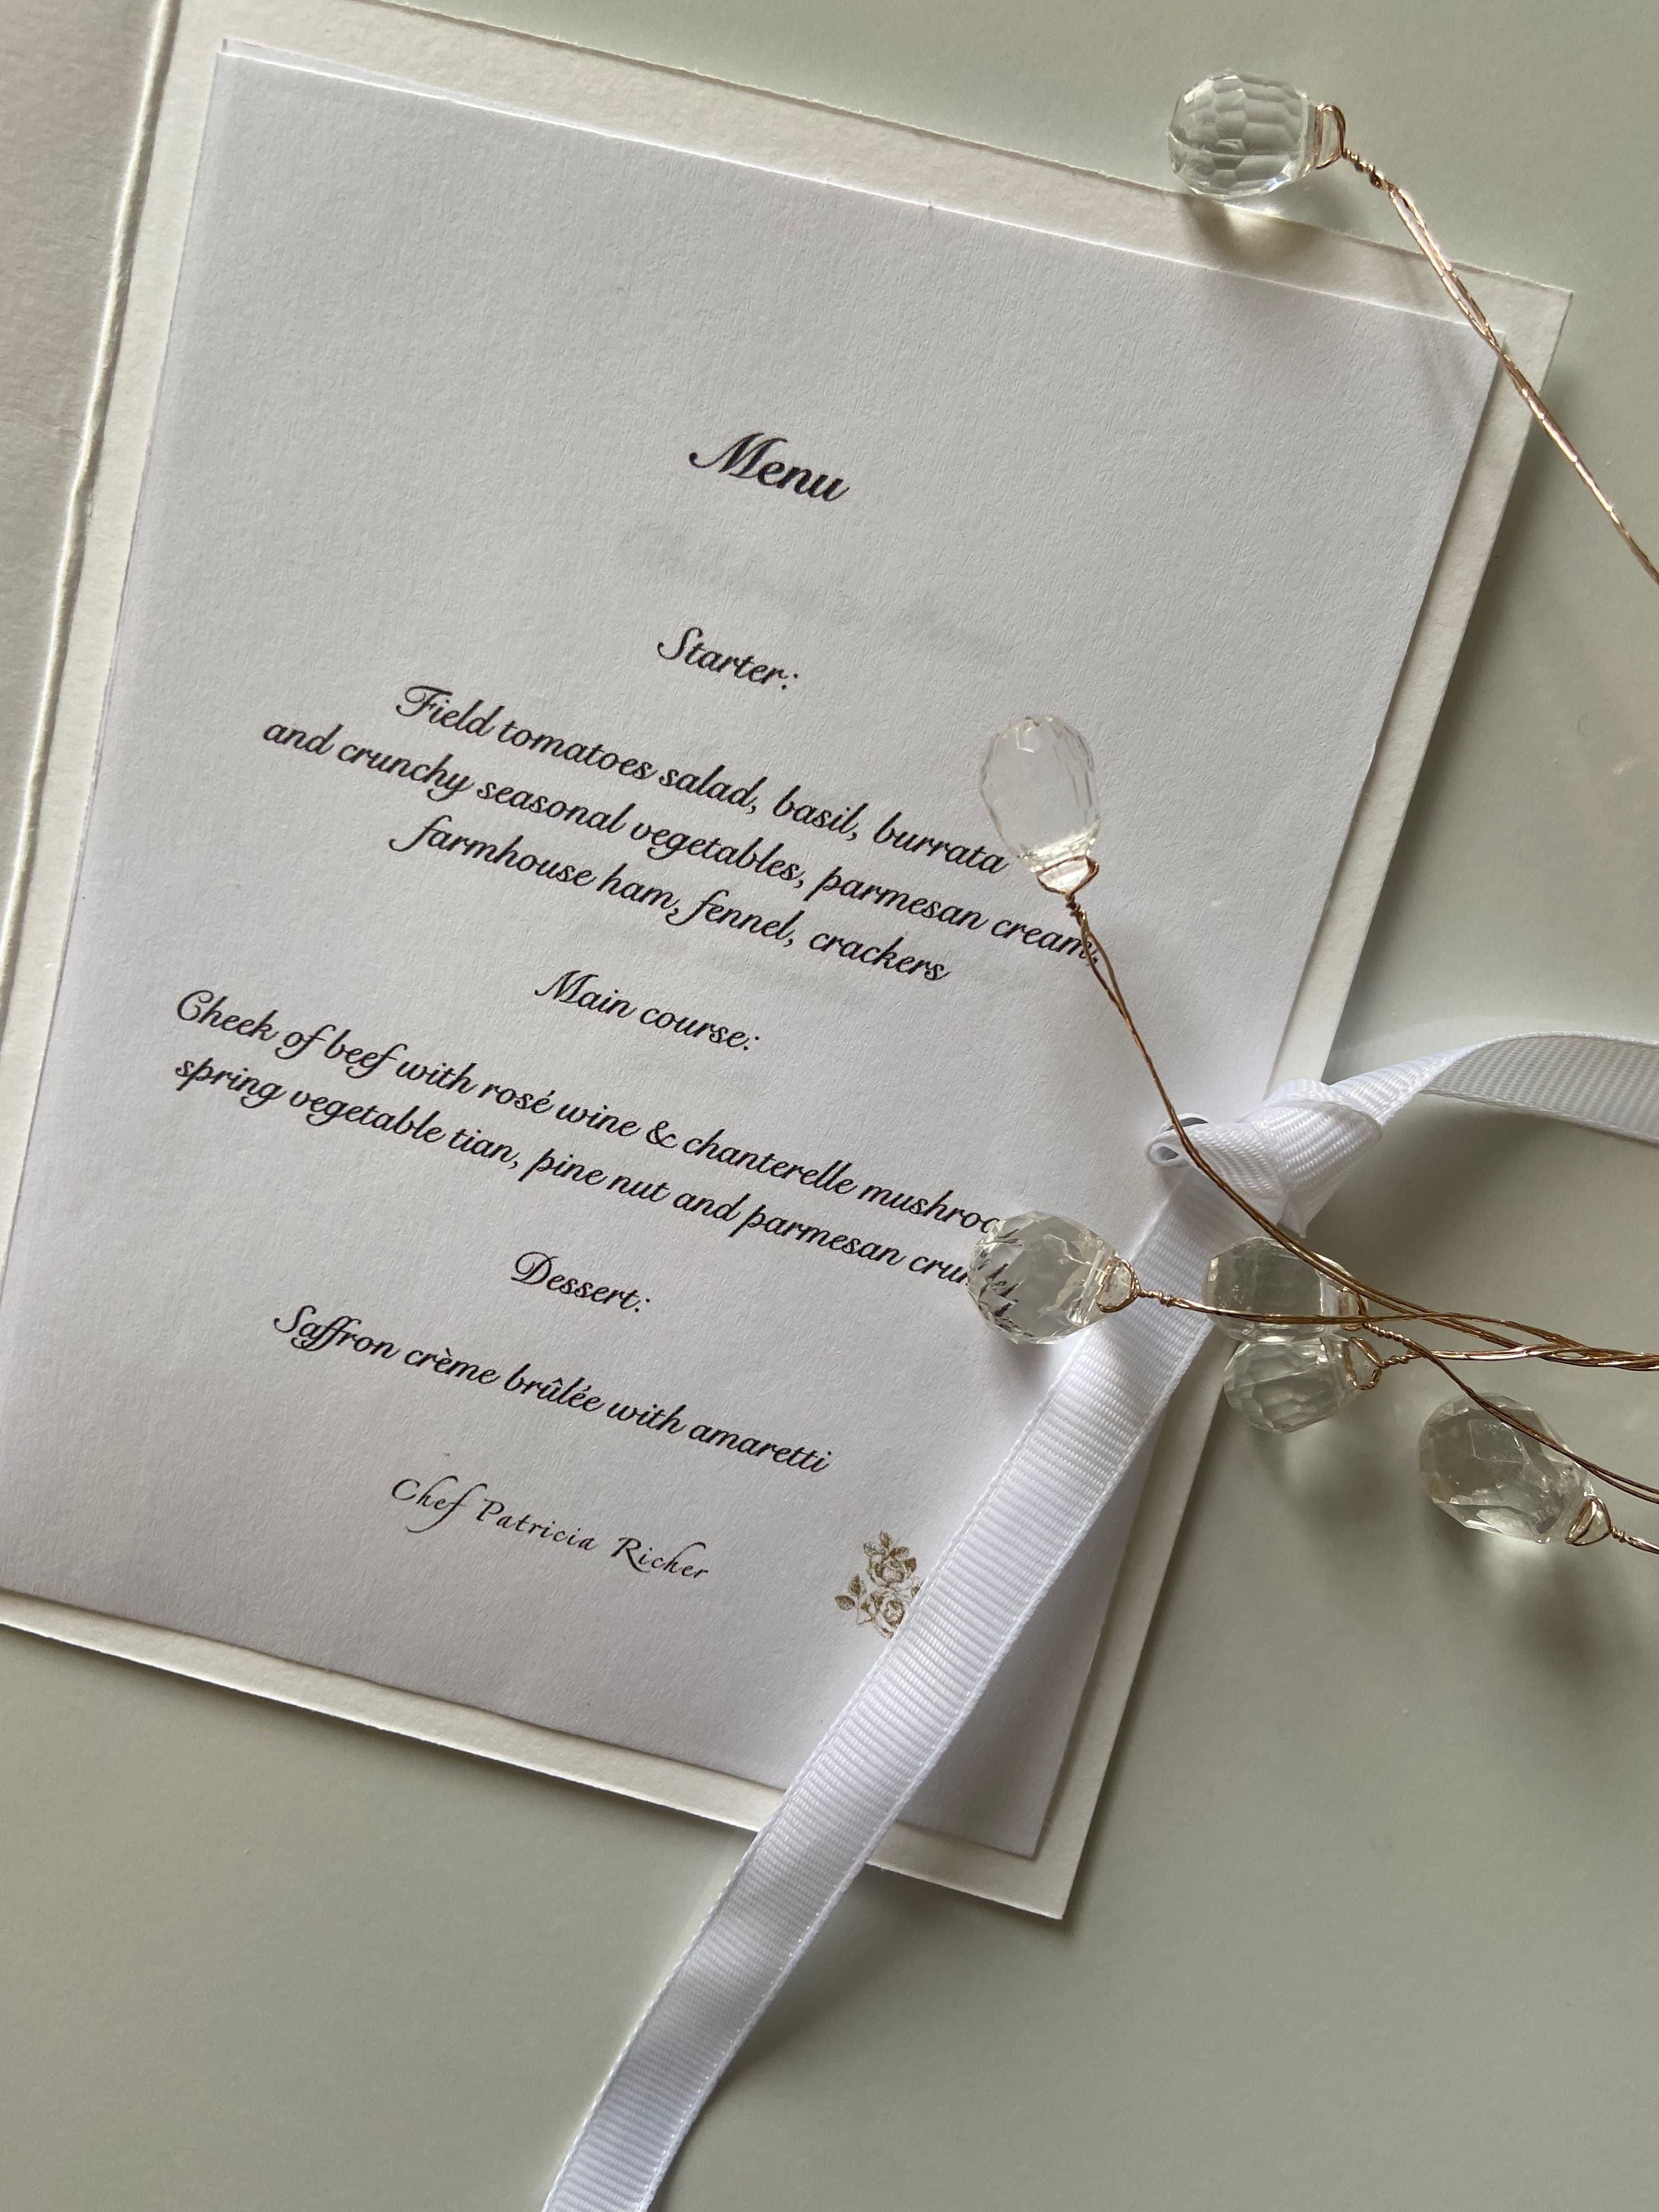 Menu
Starter:
Field tomatoes salad, basil, burrata
and crunchy seasonal vegetables, parmesan cream,
farmhouse ham, fennel, crackers
Main course:
Cheek of beef with rosé wine & chanterelle
spring vegetable tian, pine nut and parmesan
Dessert:
Saffron crème brûlée with amaretti
Chef Patricia Richer